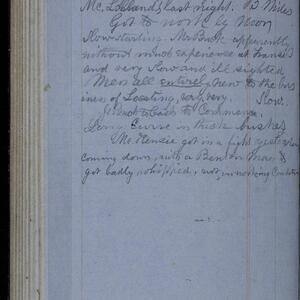 Mc. Lellands, last night. 13 Miles
Got to work by Noon
Slow starting. Mr. apparently
without much experience at Transit
and very slow and ill sighted
Men all entirely new to the bus
iness of Locating, very, very. Slow.
to Commence.
curve in thick bushes
Mc. Kenzie got in a fight yesterday
coming down, with a man &
got badly whipped, not in working Condition